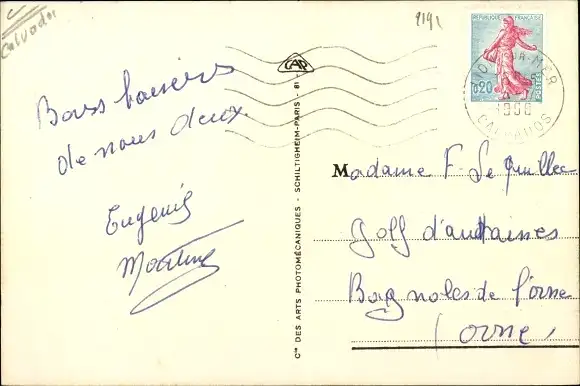 Calvados
9191
RÉPUBLIQUE FRANÇAISE
0,20
POSTES
SUR-MER
CALVADOS
CAP
Bons baisers
de nous deux.
Eugénie
Martine
Cie DES ARTS PHOTOMÉCANIQUES - SCHILTIGHEIM-PARIS - 81 -
Madame F. Le
Golf d'andaines
Bagnoles de l'orne
(orne)